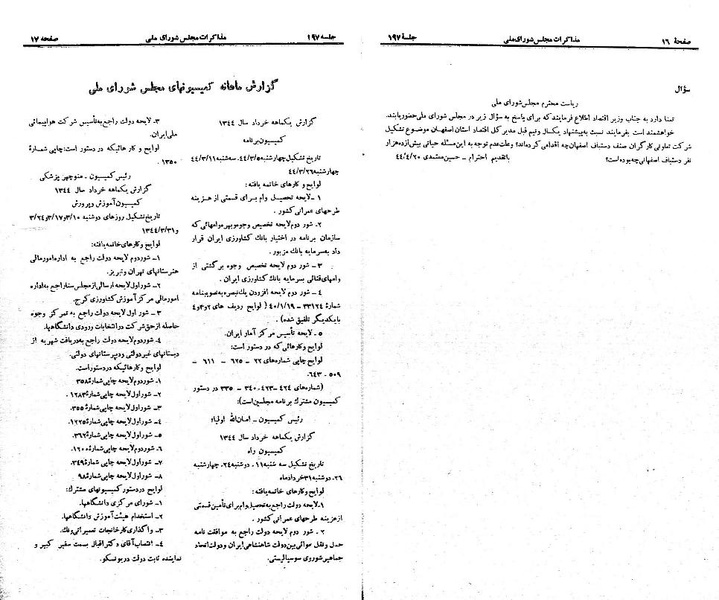 صفحهٔ ۱۶
مذاکرات مجلس شورای ملی
جلسهٔ ۱۹۷
سؤال
ریاست محترم مجلس شورای ملی
تمنا دارد به جناب وزیر اقتصاد اطلاع فرمایند که برای پاسخ به سؤال زیر در مجلس شورای ملی حضور یابند.
خواهشمند است بفرمایند نسبت به پیشنهاد یکسال ونیم قبل مدیر کل اقتصاد استان اصفهان موضوع تشکیل
شرکت تعاونی کارگران صنف دستباف اصفهان چه اقدامی کرده‌اند؟ وعلت عدم توجه به این مسئله حیاتی بیش از ده هزار
نفر دستباف اصفهانی چه بوده است؟ باتقدیم احترام - حسین معتمدی ۴۴/۴/۲۰
جلسه ۱۹۷
مذاکرات مجلس شورای ملی
صفحه ۱۷
گزارش ماهانه کمیسیونهای مجلس شورای ملی
گزارش یکماهه خرداد سال ۱۳۴۴
کمیسیون برنامه
تاریخ تشکیل چهارشنبه ۴۴/۳/۵، سه‌شنبه ۴۴/۳/۱۱
چهارشنبه ۴۴/۳/۲۶
لوایح و کارهای خاتمه یافته:
۱- لایحه تحصیل وام برای قسمتی از هزینه
طرحهای عمرانی کشور.
۲. شور دوم لایحه تخصیص وجوه بهره وامهائی که
سازمان برنامه در اختیار بانک کشاورزی ایران قرار
داد به سرمایه بانک مزبور.
۳ - شور دوم لایحه تخصیص وجوه برگشتی از
وامهای قنائی به سرمایه بانک کشاورزی ایران.
۴ - شور دوم لایحه افزودن یک تبصره به تصویبنامه
شمارهٔ ۳۳۱۲۴ - ۴۰/۱/۱۹ (لوایح ردیف های ۲و۳و۴
بایکدیگر تلفیق شده).
۵. لایحه تأسیس مرکز آمار ایران.
لوایح وکارهائی که در دستور است:
لوایح چاپی شماره‌های ۲۲ - ۶۲۵ - ۶۱۱ -
۵۰۹ - ۶۴۳.
(شماره‌های ۴۲۴ - ۴۲۳ - ۳۴۰ - ۳۳۵ در دستور
کمیسیون مشترک برنامه مجلسین است)
رئیس کمیسیون - امان‌الله
گزارش یکماهه خرداد سال ۱۳۴۴
کمیسیون راه
تاریخ تشکیل سه شنبه ۱۱، دوشنبه ۲۴، چهارشنبه
۲۶، دوشنبه ۳۱ خرداد ماه
لوایح وکارهای خاتمه یافته:
۱. لایحه دولت راجع به تحصیل وام برای تأمین قسمتی
از هزینه طرحهای عمرانی کشور.
۲. شور دوم لایحه دولت راجع به موافقت نامه
حمل ونقل هوائی بین دولت شاهنشاهی ایران ودولت اتحاد
جماهیر شوروی سوسیالیستی.
۳. لایحه دولت راجع به تأسیس شرکت هواپیمائی
ملی ایران.
لوایح و کارهائیکه در دستور است: چاپی شمارهٔ
۱۳۵۰
رئیس کمیسیون - منوچهر پزشکی
گزارش یکماهه خرداد سال ۱۳۴۴
کمیسیون آموزش و پرورش
تاریخ تشکیل روزهای دوشنبه ۳/۱۰ و ۳/۱۷ و ۳/۲۴
و ۱۳۴۴/۳/۳۱
لوایح وکارهای خاتمه یافته:
۱- شور دوم لایحه دولت راجع به اداره امور مالی
هنرستانهای تهران وتبریز.
۲. شور اول لایحه ارسالی از مجلس سنا راجع به اداره
امور مالی مرکز آموزش کشاورزی کرج.
۳ - شور اول لایحه دولت راجع به تمرکز وجوه
حاصله از حق شرکت در انتخابات ورودی دانشگاهها.
۴. شور دوم لایحه دولت راجع به دریافت شهریه از
دبستانهای غیردولتی ودبیرستانهای دولتی.
لوایح وکارهائیکه در دستور است.
۱. شور دوم لایحه چاپی شمارهٔ ۳۵۸
۲. شور اول لایحه چاپی شمارهٔ ۱۲۸۳
۳ - شور اول لایحه چاپی شمارهٔ ۳۵۵
۴. شور اول لایحه چاپی شمارهٔ ۱۲۲۵
۵ - شور اول لایحه چاپی شمارهٔ ۳۶۲
۶. شور دوم لایحه چاپی شمارهٔ ۱۲۰
۷ - شور اول لایحه چاپی شمارهٔ ۳۴۹
۸ - شور اول لایحه چاپی شمارهٔ ۹۸
لوایح در دستور کمیسیونهای مشترک:
۱- شورای مرکزی دانشگاهها.
۲. استخدام هیئت آموزش دانشگاهها.
۳ - واگذاری کارخانجات تعمیراتی ونک.
۴ - انتصاب آقای دکتر اقبال بسمت سفیر کبیر و
نماینده ثابت دولت در یونسکو.